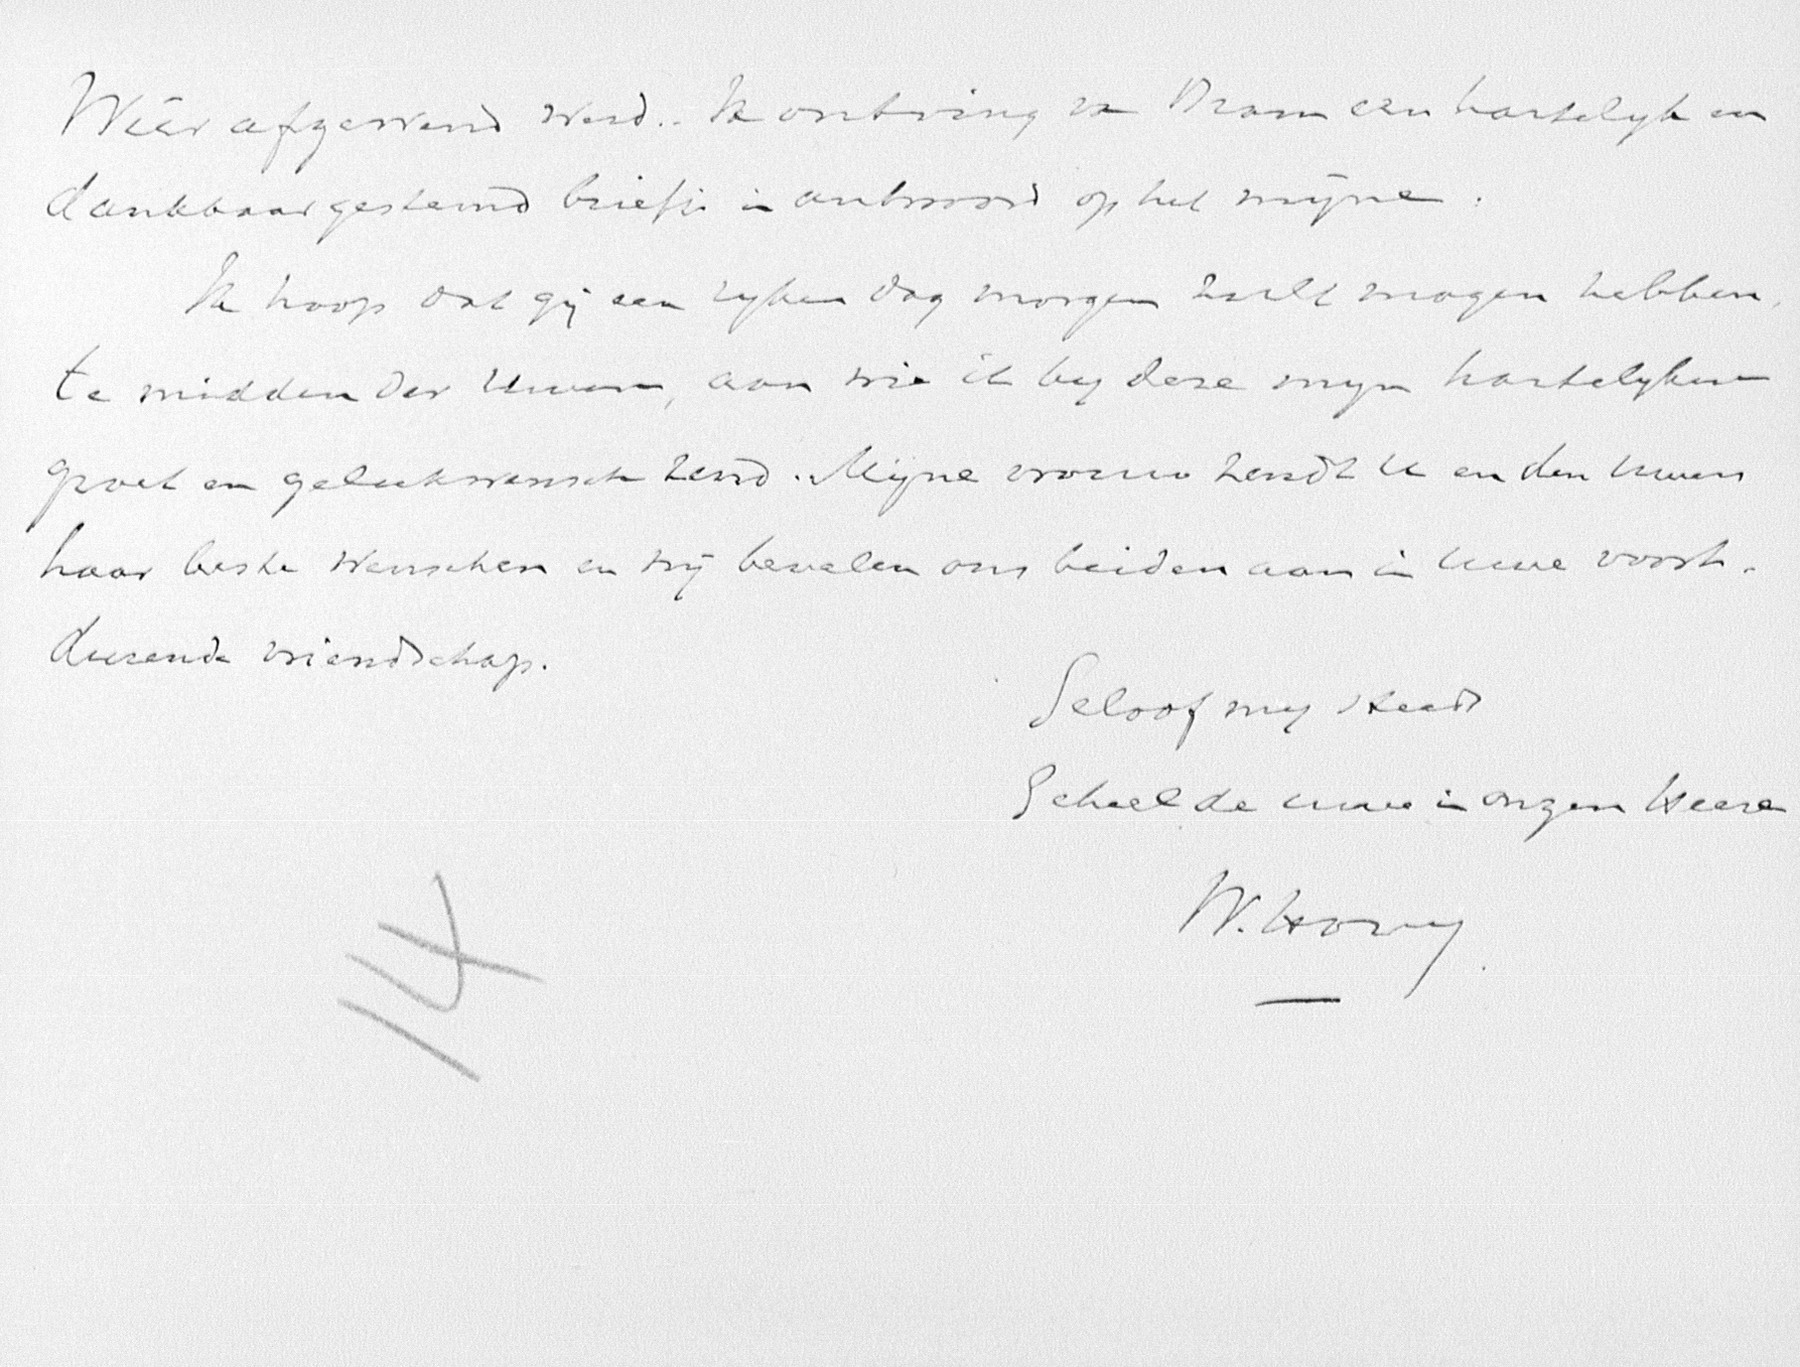 Wéér afgewend werd.. Ik ontving van Bram een hartelyk en
dankbaar gestemd briefje in antwoord op het mijne.
Ik hoop dat gij een ryken dag morgen zult mogen hebben,
te midden der Uwen, aan wie ik by deze myn hartelyken
groet en gelukwensch zend. Mijne vrouw zendt U en den Uwen
haar beste wenschen en wij bevelen ons beiden aan in Uwe voort-
durende vriendschap.
Geloof my steeds
Geheel de uwe in onzen Heere
W. Hovy.
14